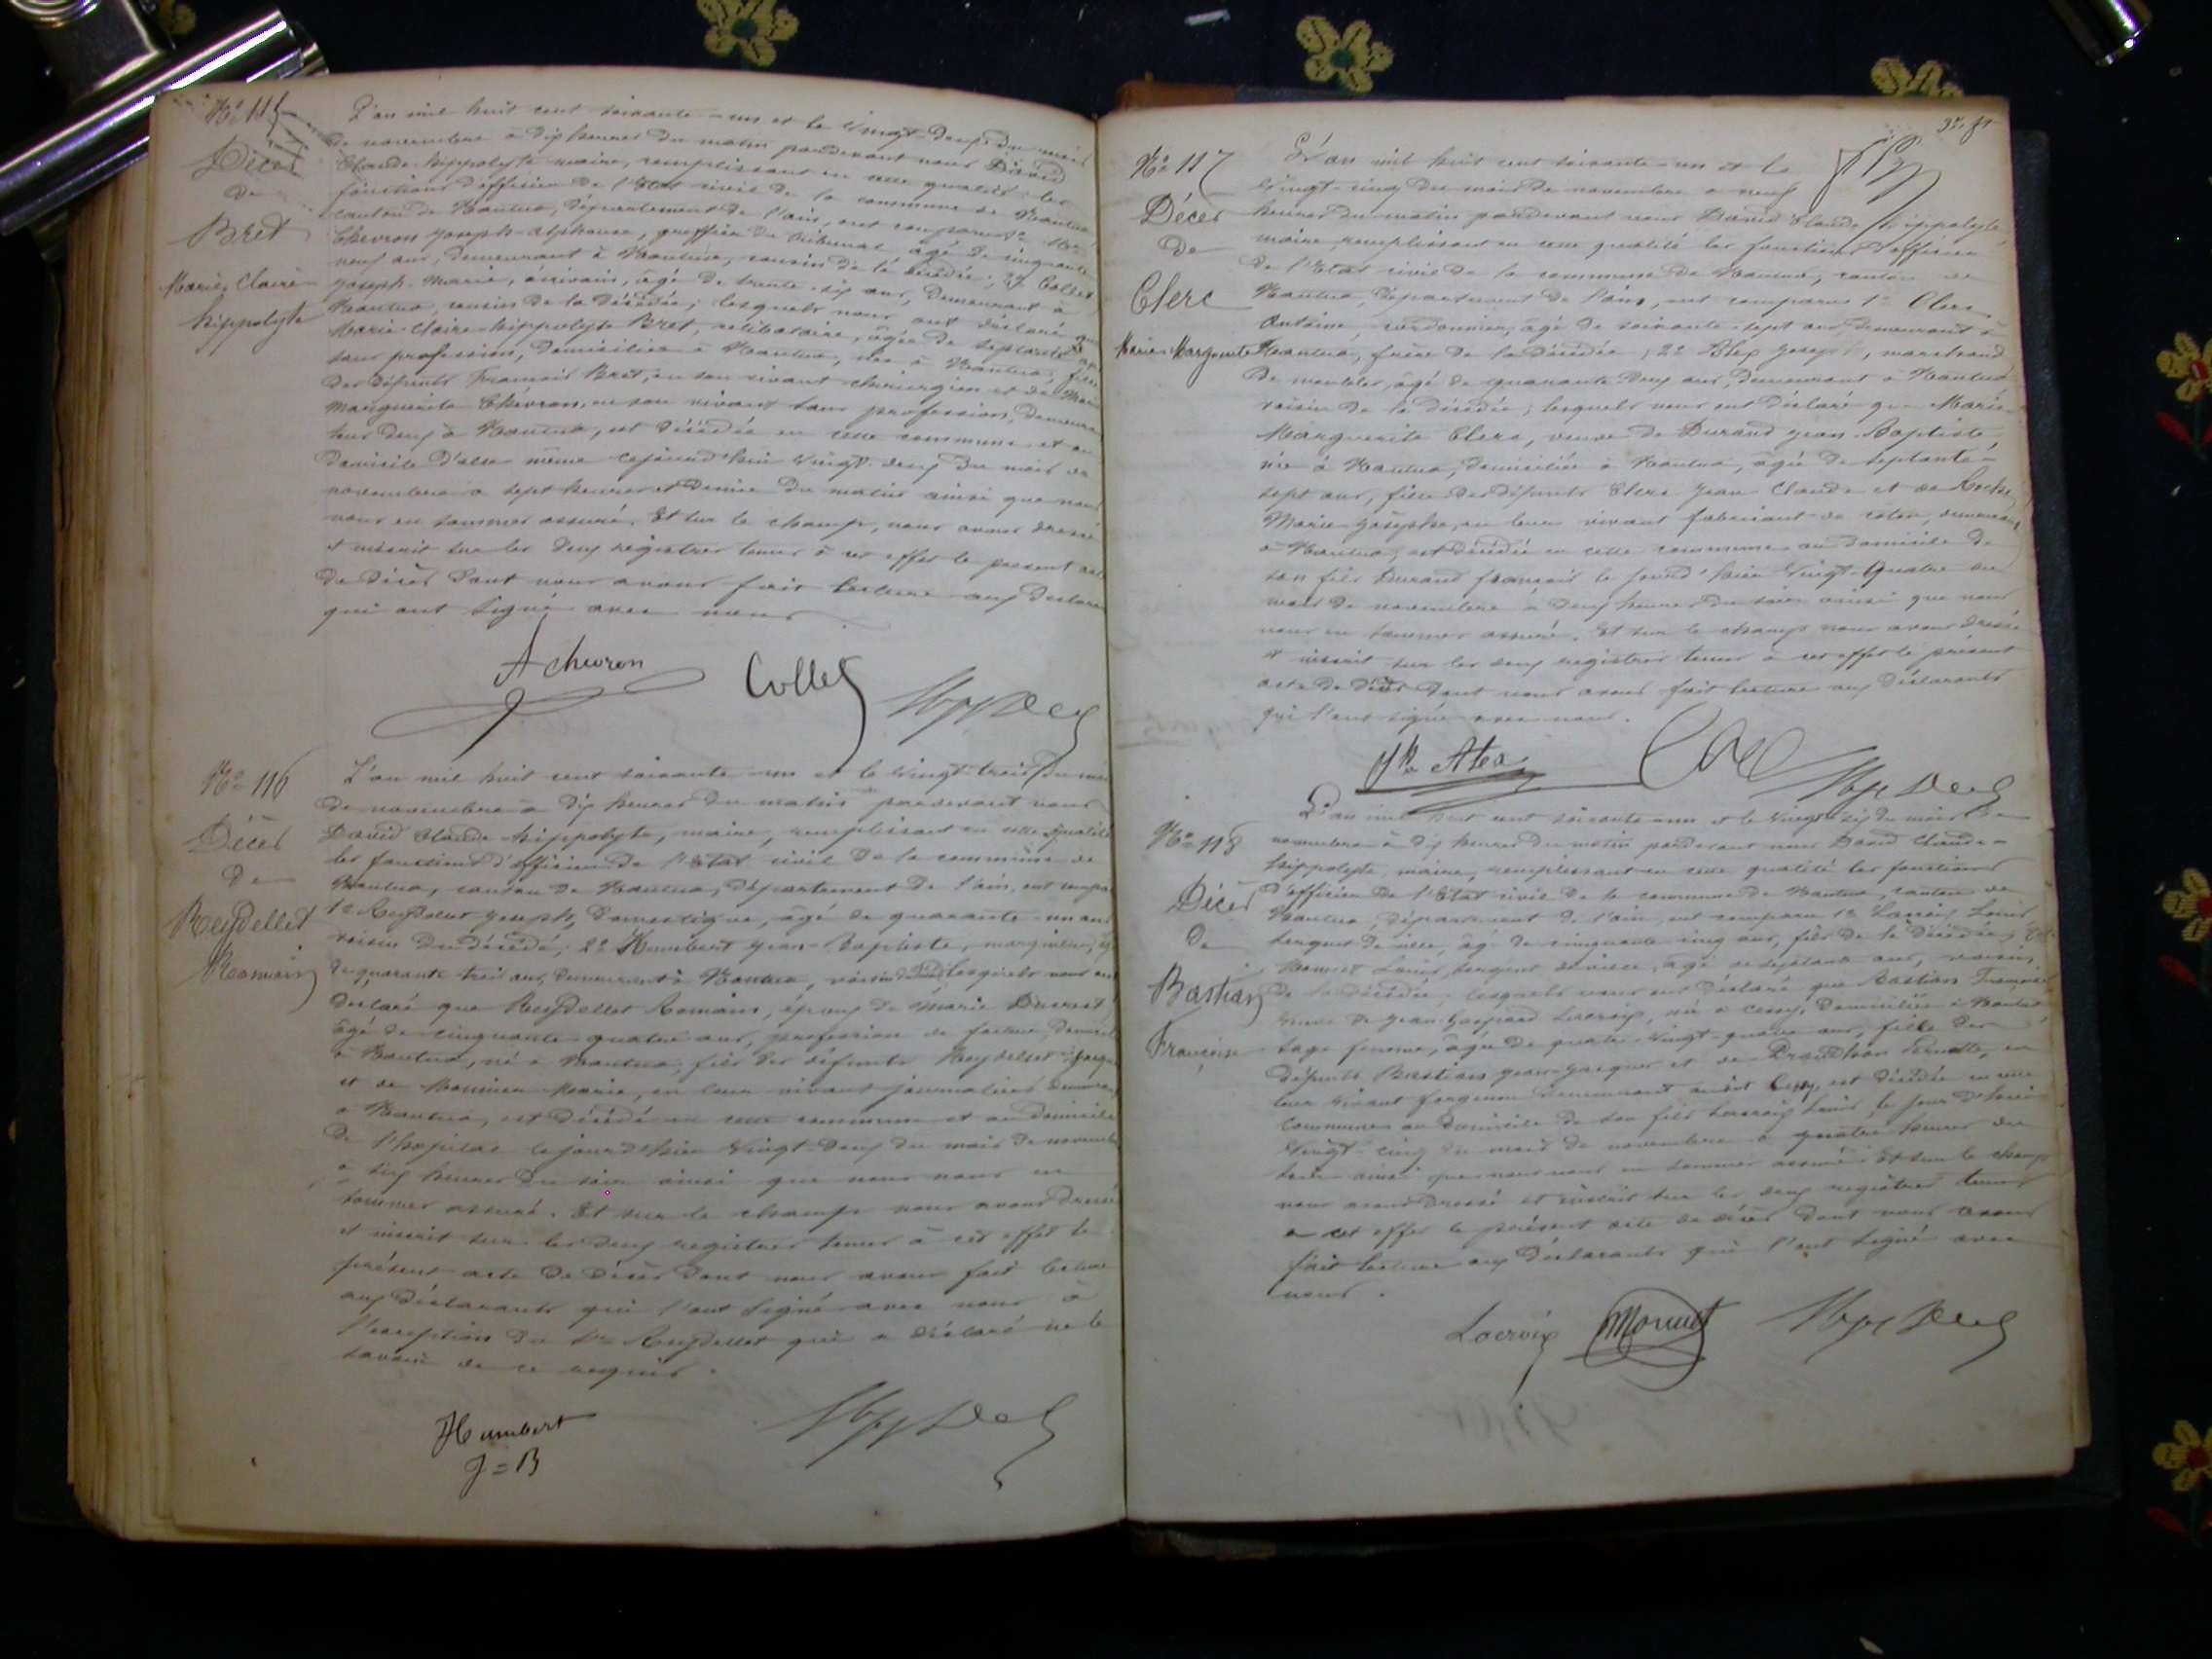 No 115
Décès
de
Bret
Marie Claire
hippolyte
L'an mil huit cent soixante-un et le vingt-deux du mois
de novembre à dix heures du matin pardevant nous David
Claude hippolyte maire, remplissant en cette qualité les
fonctions d'officier de l'Etat civil de la commune de Nantua
canton de Nantua, département de l'ain, ont comparu 1o
Chevron joseph alphonse, greffier du tribunal âgé de cinquante
neuf ans, demeurant à Nantua, cousin de la décédée; 2o Collet
joseph-marie, écrivain, âgé de trente-six ans, demeurant à
Nantua, cousin de la décédée; lesquels nous ont déclaré que
Marie-Claire-hippolyte Bret, célibataire, âgée de septante
sans profession, domiciliée à Nantua, née à Nantua, fille
des défunts François Bret, en son vivant chirurgien et de Marie
Marguerite Chevron, en son vivant sans profession, demeurant
tous deux à Nantua, est décédée en cette commune et au
domicile d'elle même cejourd'hui vingt-deux du mois de
novembre à sept heures et demie du matin ainsi que nous
nous en sommes assuré. Et sur le champ, nous avons dressé
et inscrit sur les deux registres tenus à cet effet le présent acte
de décès dont nous avons fait lecture aux déclarants
qui ont signé avec nous
A chevron Collet
No 116
Décès
de
Reydellet
Romain
L'an mil huit cent soixante-un et le vingt-trois du mois
de novembre à dix heures du matin pardevant nous
David Claude-hippolyte, maire, remplissant en cette qualité
les fonctions d'officier de l'Etat civil de la commune de
Nantua, canton de Nantua, département de l'ain, ont comparu
1o Reydellet joseph, domestique, âgé de quarante-un ans
voisin du décédé; 2o Humbert jean-Baptiste, marguillier, âgé
de quarante trois ans, demeurant à Nantua, voisin lesquels nous ont
déclaré que Reydellet Romain, époux de Marie
âgé de cinquante-quatre ans, profession de domicilié
à Nantua, né à Nantua, fils des défunts Reydellet
et de Marie, en leur vivant journaliers demeurant
à Nantua, est décédé en cette commune et au domicile
de l'hôpital le jour d'hier vingt-deux du mois de novembre
à six heures du soir ainsi que nous nous en
sommes assuré. Et sur le champ nous avons dressé
et inscrit sur les deux registres tenus à cet effet le
présent acte de décès dont nous avons fait lecture
aux déclarants qui l'ont signé avec nous à
l'exception du Reydellet qui a déclaré ne le
savoir de ce requis.
Humbert
J=B
No 117
Décès
de
Clerc
Marie Marguerite
L'an mil huit cent soixante-un et le
vingt-cinq du mois de novembre à neuf
heures du matin pardevant nous David Claude hippolyte,
maire remplissant en cette qualité les fonctions d'officier
de l'Etat civil de la commune de Nantua, canton de
Nantua, département de l'ain, ont comparu 1o Clerc
Antoine, cordonnier, âgé de soixante-sept ans, demeurant à
Nantua, frère de la décédée; 2o joseph, marchand
de meubles, âgé de quarante deux ans, demeurant à Nantua
voisin de la décédée; lesquels nous ont déclaré que Marie
Marguerite Clerc, veuve de Durand jean-Baptiste,
née à Nantua, domiciliée à Nantua, âgée de septante-
sept ans, fille des défunts Clerc jean Claude et de Roche
Marie-josephe, en leur vivant fabricant de demeurant
à Nantua, est décédée en cette commune au domicile de
son fils Durand françois le jourd'hier vingt-quatre du
mois de novembre à deux heures du soir ainsi que nous
nous en sommes assuré. Et sur le champ nous avons dressé
et inscrit sur les deux registres tenus à cet effet le présent
acte de décès dont nous avons fait lecture aux déclarants
qui l'ont signé avec nous.
No 118
Décès
de
Bastian
Françoise
L'an mil huit cent soixante-un et le vingt-six du mois de
novembre à dix heures du matin pardevant nous David Claude-
hippolyte, maire, remplissant en cette qualité les fonctions
d'officier de l'Etat civil de la commune de Nantua, canton de
Nantua, département de l'ain, ont comparu 1o Lacroix Louis,
sergent de ville, âgé de cinquante cinq ans, fils de la décédée; 2o
Monnet Louis, sergent de ville, âgé de septante ans, voisin
de la décédée; lesquels nous ont déclaré que Bastian Françoise
veuve de jean-Gaspard Lacroix, née à Cessy, domiciliée à Nantua
sage femme, âgée de quatre-vingt-quatre ans, fille des
défunts Bastian jean-jacques et de Pernette, en
leur vivant demeurant audit Cessy, est décédée en cette
commune au domicile de son fils Lacroix Louis, le jour d'hier
vingt-cinq du mois de novembre à quatre heures du
soir ainsi que nous nous en sommes assuré. Et sur le champ
nous avons dressé et inscrit sur les deux registres tenus
à cet effet le présent acte de décès dont nous avons
fait lecture aux déclarants qui l'ont signé avec
nous.
Lacroix Monnet